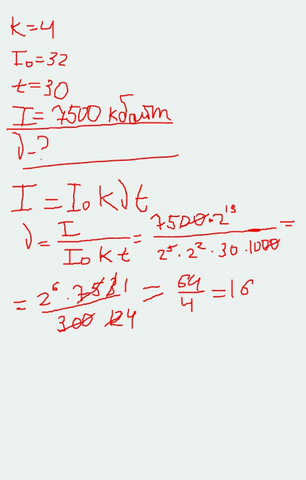 k=4
I₀=32
t=30
I=7500 кбайт
ν-?
I=I₀kνt
ν=I/(I₀kt)=7500·2¹³/(2⁵·2²·30·1000)=
=2⁶·75 1/(300 124)=64/4=16